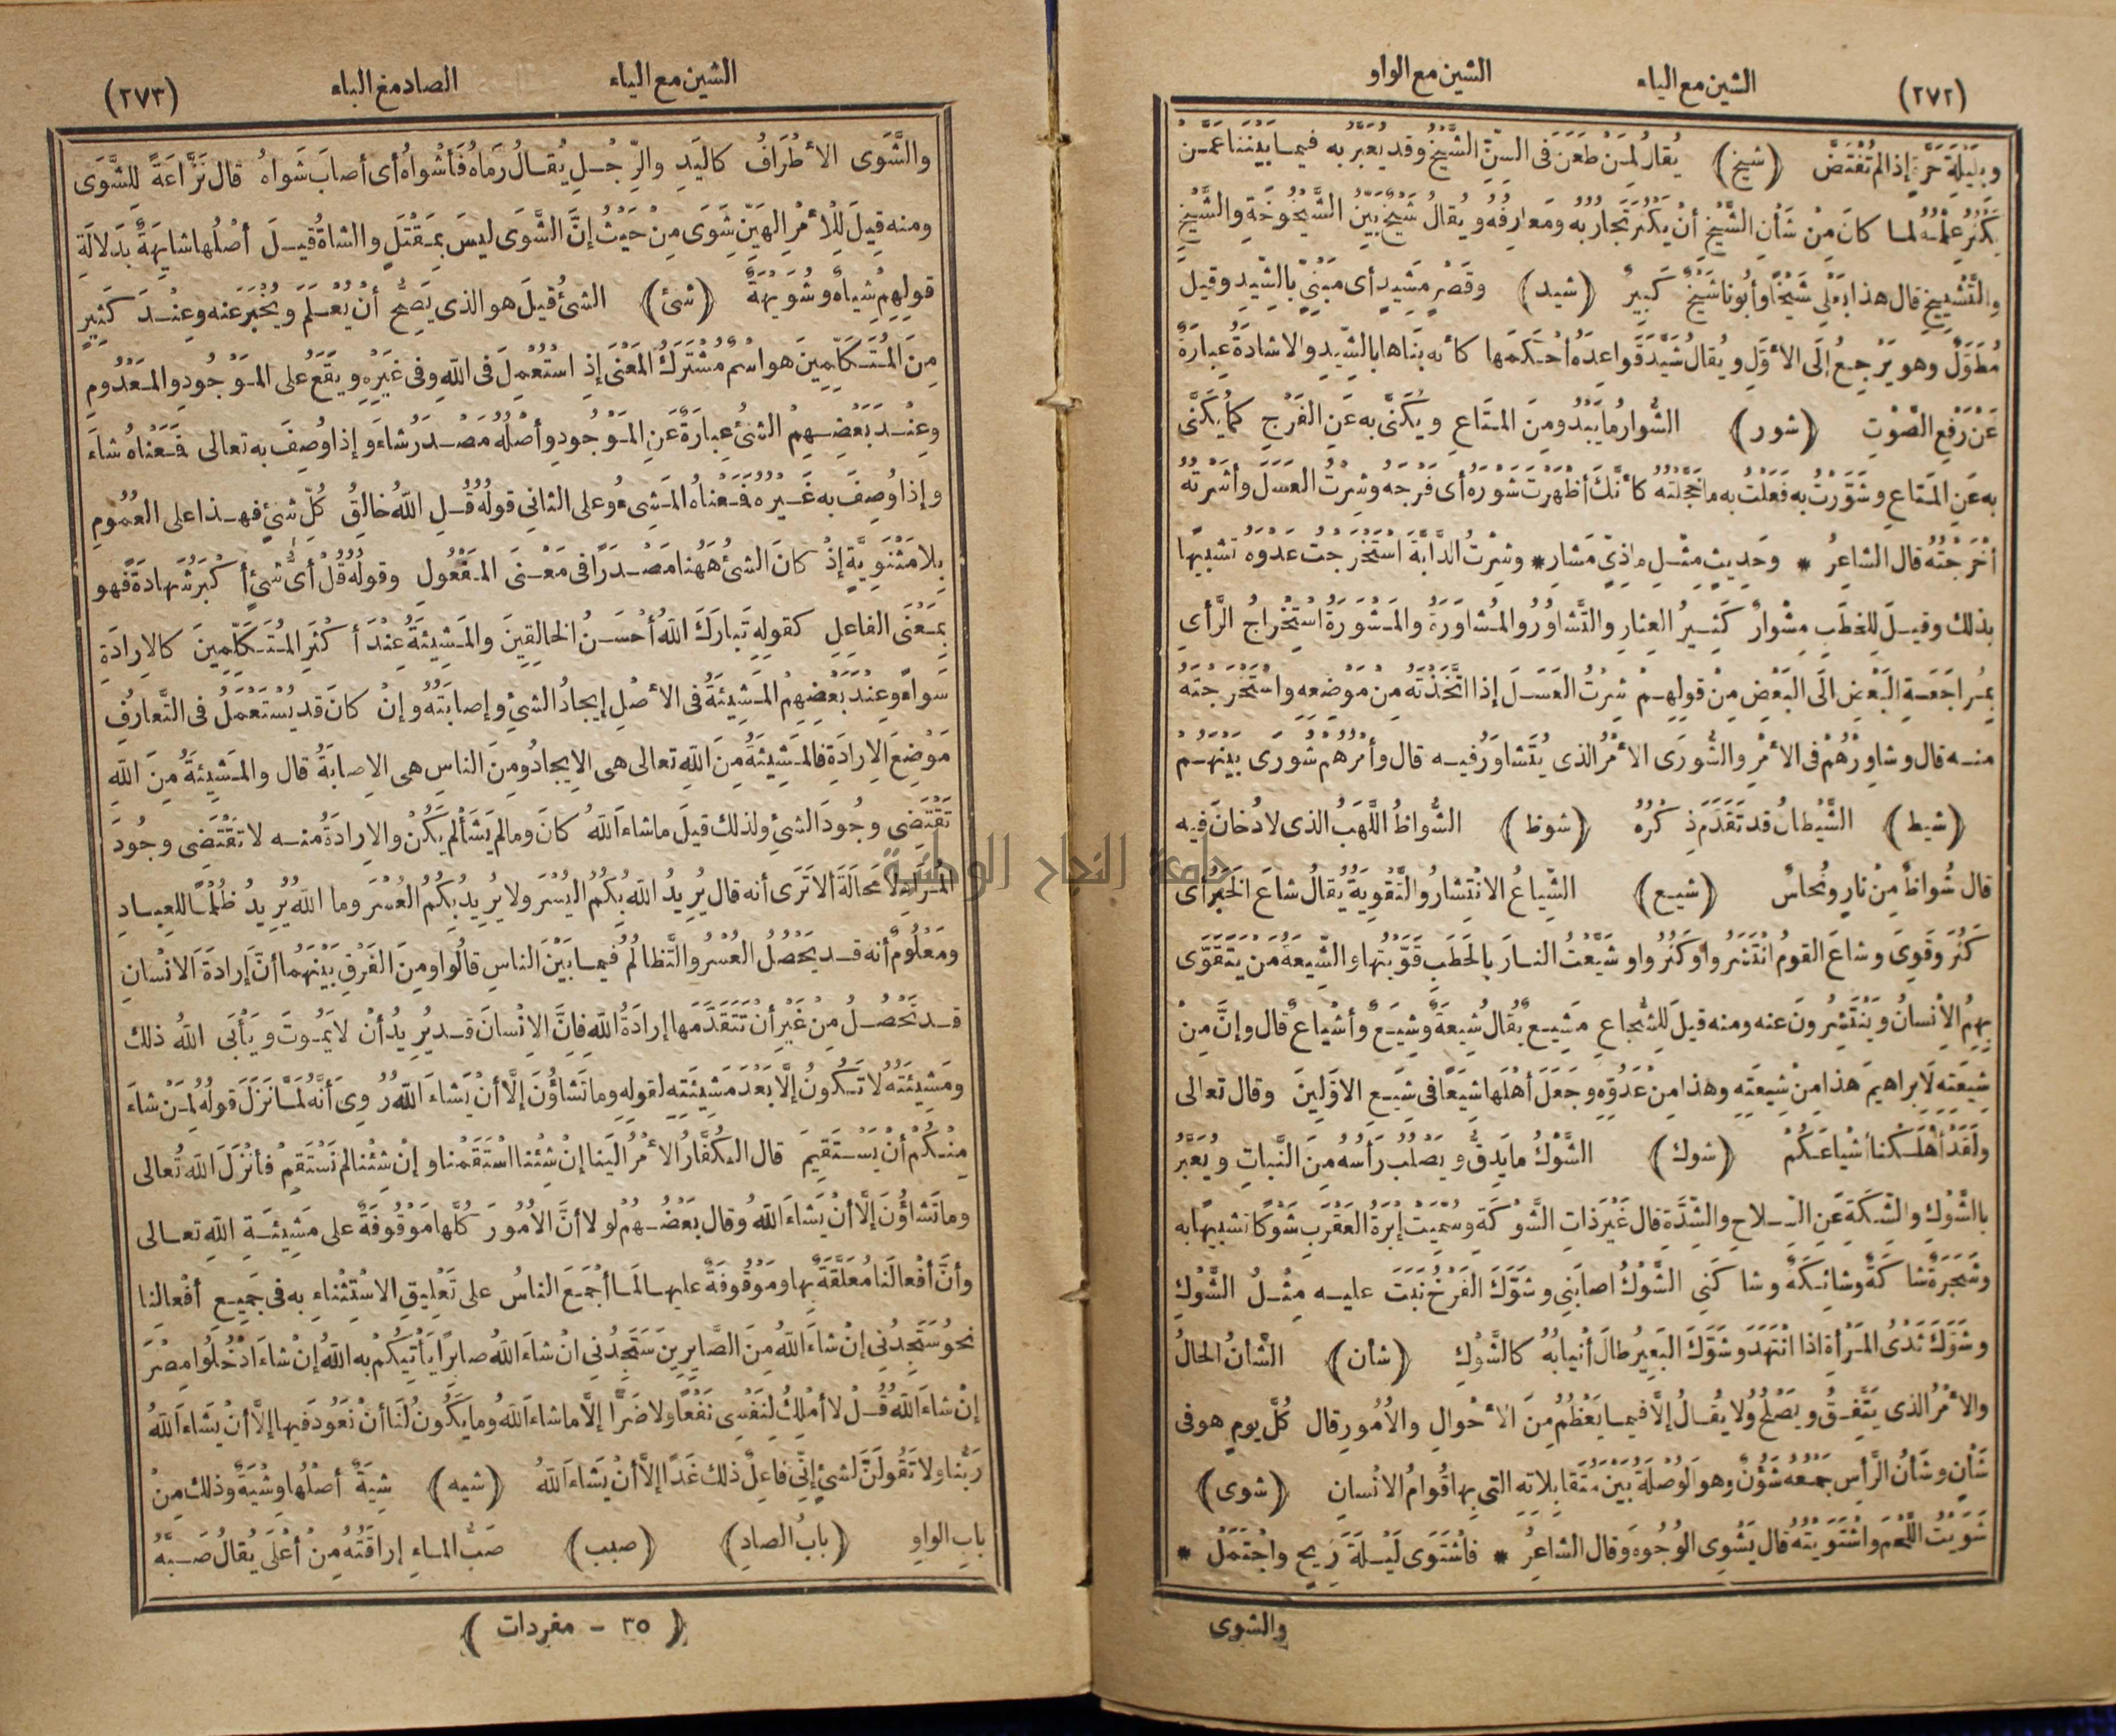 (٢٧٢) الشين مع الياء الشين مع الواو
وبِلَيْلَةِ حُرَّةٍ إذا لم تُفْتَضَّ (شيخ) يُقالُ لِمَنْ طَعَنَ فى السِّنِّ الشَّيْخُ وقد يُعَبَّرُ به فيما بَيْنَنا عَمَّنْ
يَكْثُرُ عِلْمُه لما كانَ مِنْ شَأْنِ الشَّيْخِ أنْ يَكْثُرَ تَجارُبُه ومَعارِفُه ويُقالُ شَيْخٌ بَيِّنُ الشَّيْخُوخَةِ والشَّيَخِ
والتَّشْيِيخِ قال هذا بَعْلِى شَيْخًا وأبُونا شَيْخٌ كَبِيرٌ (شيد) وقَصْرٍ مَشِيدٍ أى مَبْنِيٍّ بالشِّيدِ وقيل
مُطَوَّلٌ وهو يَرْجِعُ إلَى الأوَّلِ ويُقالُ شَيَّدَ قَواعِدَهُ أحْكَمَها كأنه بَناها بالشِّيدِ والاشادَةُ عِبارَةٌ
عَنْ رَفْعِ الصَّوْتِ (شور) الشُّوارُ ما يَبْدُو مِنَ المَتاعِ ويُكَنَّى به عَنِ الفَرْجِ كما يُكَنَّى
به عَنِ المَتاعِ وشَوَّرْتُ به فَعَلْتُ به ما خَجَّلْتَه كأنَّكَ أظْهَرْتَ شَوْرَه أى فَرْجَه وشِرْتُ العَسَلَ وأشَرْتُه
أخْرَجْتُه قال الشاعِرُ * وحَدِيثٍ مِثْلِ ماذِيٍّ مَشارِ * وشِرْتُ الدَّابَّةَ اسْتَخْرَجْتُ عَدْوَه تشبيهًا
بذلك وقيلَ للخطَبِ مِشْوارٌ كَثِيرُ العِثارِ والتَّشاوُرُ والمُشاوَرَةُ والمَشُورَةُ اسْتِخْراجُ الرَّأىِ
بمُراجَعَةِ البَعْضِ الَى البَعْضِ مِنْ قولِهِمْ شِرْتُ العَسَلَ إذا اتَّخَذْتَه مِنْ مَوْضِعِه واسْتَخْرَجْتَه
منه قال وشاوِرْهُمْ فى الأمْرِ والشُّورَى الأمْرُ الذى يُتَشاوَرُ فيه قال وأمْرُهم شُورَى بَيْنَهُم
(شيط) الشَّيْطانُ قد تَقَدَّمَ ذِكْرُه (شوظ) الشُّواظُ اللَّهَبُ الذى لا دُخانَ فيه
قال شُواظٌ مِنْ نارٍ ونُحاسٌ (شيع) الشِّياعُ الانْتِشارُ والتَّقْوِيَةُ يُقالُ شاعَ الخَبَرُ أى
كَثُرَ وقَوِىَ وشاعَ القومُ انْتَشَرُوا وكَثُرُوا وشَيَّعْتُ النارَ بالحَطَبِ قَوَّيْتُها والشِّيعَةُ مَنْ يَتَقَوَّى
بِهِمُ الانْسانُ ويَنْتَشِرُونَ عنه ومنه قيلَ للشُّجاعِ مَشِيعٌ يُقالُ شِيعَةٌ وشِيَعٌ وأشْياعٌ قال وإنَّ مِنْ
شِيعَتِه لَابراهيمَ هذا مِنْ شِيعَتِهِ وهذا مِنْ عَدُوِّهِ وجَعَلَ أهْلَها شِيَعًا فى شِيَعِ الاوَّلِينَ وقال تعالى
ولَقَدْ أهْلَكْنا أشْياعَكُمْ (شوك) الشَّوْكُ ما يَدِقُّ ويَصْلُبُ رَأسُه مِنَ النَّباتِ ويُعَبَّرُ
بالشَّوْكِ والشِّكَةِ عَنِ السِّلاحِ والشِّدَّةِ قال غَيْرَ ذاتِ الشَّوْكَةِ وسُمِّيَتْ إبْرَةُ العَقْرَبِ شَوْكًا تشبيهًا به
وشَجَرَةٌ شاكَةٌ وشائِكَةٌ وشاكَنِى الشَّوْكُ اصابَنِى وشَوَّكَ الفَرْخُ نَبَتَ عليه مِثْلُ الشَّوْكِ
وشَوَّكَ ثَدْىُ المَرْأةِ اذا انْتَهَدَ وشَوَّكَ البَعِيرُ طالَ أنْيابُه كالشَّوْكِ (شأن) الشَّأنُ الحالُ
والأمْرُ الذى يَتَّفِقُ ويَصْلُحُ ولا يُقالُ إلَّا فيما يَعْظُمُ مِنَ الأحْوالِ والأُمُورِ قال كُلَّ يومٍ هو فى
شَأنٍ وشَأنُ الرَّأسِ جَمْعُه شُؤُنٌ وهو الوُصْلَةُ بَيْنَ مُتَقابِلاتِه التى بها قُوامُ الانْسانِ (شوى)
شَوَيْتُ اللَّحْمَ واشْتَوَيْتُه قال يَشْوِى الوُجُوهَ وقال الشاعِرُ * فاشْتَوَى لَيْلَةَ رِيحٍ واجْتَمَلْ *
والشوى
الشين مع الياء الصاد مع الباء (٢٧٣)
والشَّوَى الأطْرافُ كاليَدِ والرِّجْلِ يُقالُ رَماهُ فَأشْواهُ أى أصابَ شَواهُ قال نَزَّاعَةً لِلشَّوَى
ومنه قِيلَ لِلْأمْرِ الهَيِّنِ شَوَى مِنْ حَيْثُ إنَّ الشَّوَى ليسَ بمَقْتَلٍ والشاةُ قيلَ أصْلُها شايَهَةٌ بدَلالَةِ
قولِهِمْ شِياهٌ وشُوَيْهَةٌ (شئ) الشئُ قيلَ هو الذى يَصِحُّ أنْ يُعْلَمَ ويُخْبَرَ عنه وعِنْدَ كَثِيرٍ
مِنَ المُتَكَلِّمِينَ هو اسْمٌ مُشْتَرَكُ المَعْنَى إذِ اسْتُعْمِلَ فى اللّهِ وفى غَيْرِه ويَقَعُ على المَوْجُودِ والمَعْدُومِ
وعِنْدَ بَعْضِهِمْ الشئُ عِبارَةٌ عَنِ المَوْجُودِ وأصْلُه مَصْدَرُ شاءَ وإذا وُصِفَ به تعالى فَمَعْناهُ شاءَ
وإذا وُصِفَ به غَيْرُه فَمَعْناهُ المَشِىءُ وعلى الثانى قولُه قُلِ اللّهُ خالِقُ كُلِّ شئٍ فهذا على العُمُومِ
بِلا مَثْنَوِيَّةٍ إذْ كانَ الشئُ هَهُنا مَصْدَرًا فى مَعْنَى المَفْعُولِ وقولُه قُلْ أىُّ شئٍ أكْبَرُ شَهادَةً فهو
بمَعْنَى الفاعِلِ كقولِهِ تَبارَكَ اللهُ أحْسَنُ الخالِقِينَ والمَشِيئَةُ عِنْدَ أكْثَرِ المُتَكَلِّمِينَ كالارادَةِ
سَواءٌ وعِنْدَ بَعْضِهِمُ المَشِيئَةُ فى الأصْلِ إيجادُ الشئِ وإصابَتُه وإنْ كانَ قد يُسْتَعْمَلُ فى التَّعارُفِ
مَوْضِعَ الارادَةِ فالمَشِيئَةُ مِنَ اللّهِ تعالى هى الايجادُ ومِنَ الناسِ هى الاصابَةُ قال والمَشِيئَةُ مِنَ اللهِ
تَقْتَضِى وجُودَ الشئِ ولذلك قيلَ ما شاءَ اللهُ كانَ وما لم يَشَأْ لم يَكُنْ والارادَةُ منه لا تَقْتَضِى وجُودَ
المُرادِ لا مَحالَةَ ألا تَرَى أنه قال يُرِيدُ اللهُ بِكُمُ اليُسْرَ ولا يُرِيدُ بِكُمُ العُسْرَ وما اللهُ يُرِيدُ ظُلْمًا للعِبادِ
ومَعْلُومٌ أنه قد يَحْصُلُ العُسْرُ والتَّظالُمُ فيما بَيْنَ الناسِ قالُوا ومِنَ الفَرْقِ بَيْنَهُما أنَّ إرادَةَ الانْسانِ
قد تَحْصُلُ مِنْ غَيْرِ أنْ تَتَقَدَّمَها إرادَةُ اللهِ فانَّ الانْسانَ قد يُرِيدُ أنْ لا يَمُوتَ ويَأْبَى اللهُ ذلك
ومَشِيئَتُه لا تَكُونُ إلَّا بَعْدَ مَشِيئَتِه لقولِه وما تَشاؤُنَ إلَّا أنْ يَشاءَ اللهُ رُوِىَ أنَّه لَمَّا نَزَلَ قولُه لِمَنْ شاءَ
مِنْكُمْ أنْ يَسْتَقِيمَ قال الكُفَّارُ الأمْرُ الَيْنا إنْ شِئْنا اسْتَقَمْنا وإنْ شِئْنا لم نَسْتَقِمْ فأنْزَلَ اللهُ تعالى
وما تَشاؤُنَ إلَّا أنْ يَشاءَ اللهُ وقال بَعْضُهُمْ لولا أنَّ الأُمُورَ كُلَّها مَوْقُوفَةٌ على مَشِيئَةِ اللهِ تعالى
وأنَّ أفْعالَنا مُعَلَّقَةٌ بها ومَوْقُوفَةٌ عليها لَما أجْمَعَ الناسُ على تَعْلِيقِ الاسْتِثْناءِ به فى جَمِيعِ أفْعالِنا
نحوُ سَتَجِدُنِى إنْ شاءَ اللهُ مِنَ الصَّابِرِينَ سَتَجِدُنِى انْ شاءَ اللهُ صابِرًا يَأْتِيكُمْ به اللهُ إنْ شاءَ ادْخُلُوا مِصْرَ
إنْ شاءَ اللهُ قُلْ لا أمْلِكُ لِنَفْسِى نَفْعًا ولا ضَرًّا إلَّا ما شاءَ اللهُ وما يَكُونُ لَنا أنْ نَعُودَ فيها إلَّا أنْ يَشاءَ اللهُ
رَبُّنا ولا تَقُولَنَّ لشئٍ إنِّى فاعِلٌ ذلك غَدًا إلَّا أنْ يَشاءَ اللهُ (شيه) شِيَةٌ أصْلُها وِشْيَةٌ وذلك مِنْ
بابِ الواوِ (بابُ الصادِ) (صبب) صَبُّ الماءِ إراقَتُه مِنْ أعْلَى يُقالُ صَبَّهُ
(٣٥ - مفردات)
جامعة النجاح الوطنية